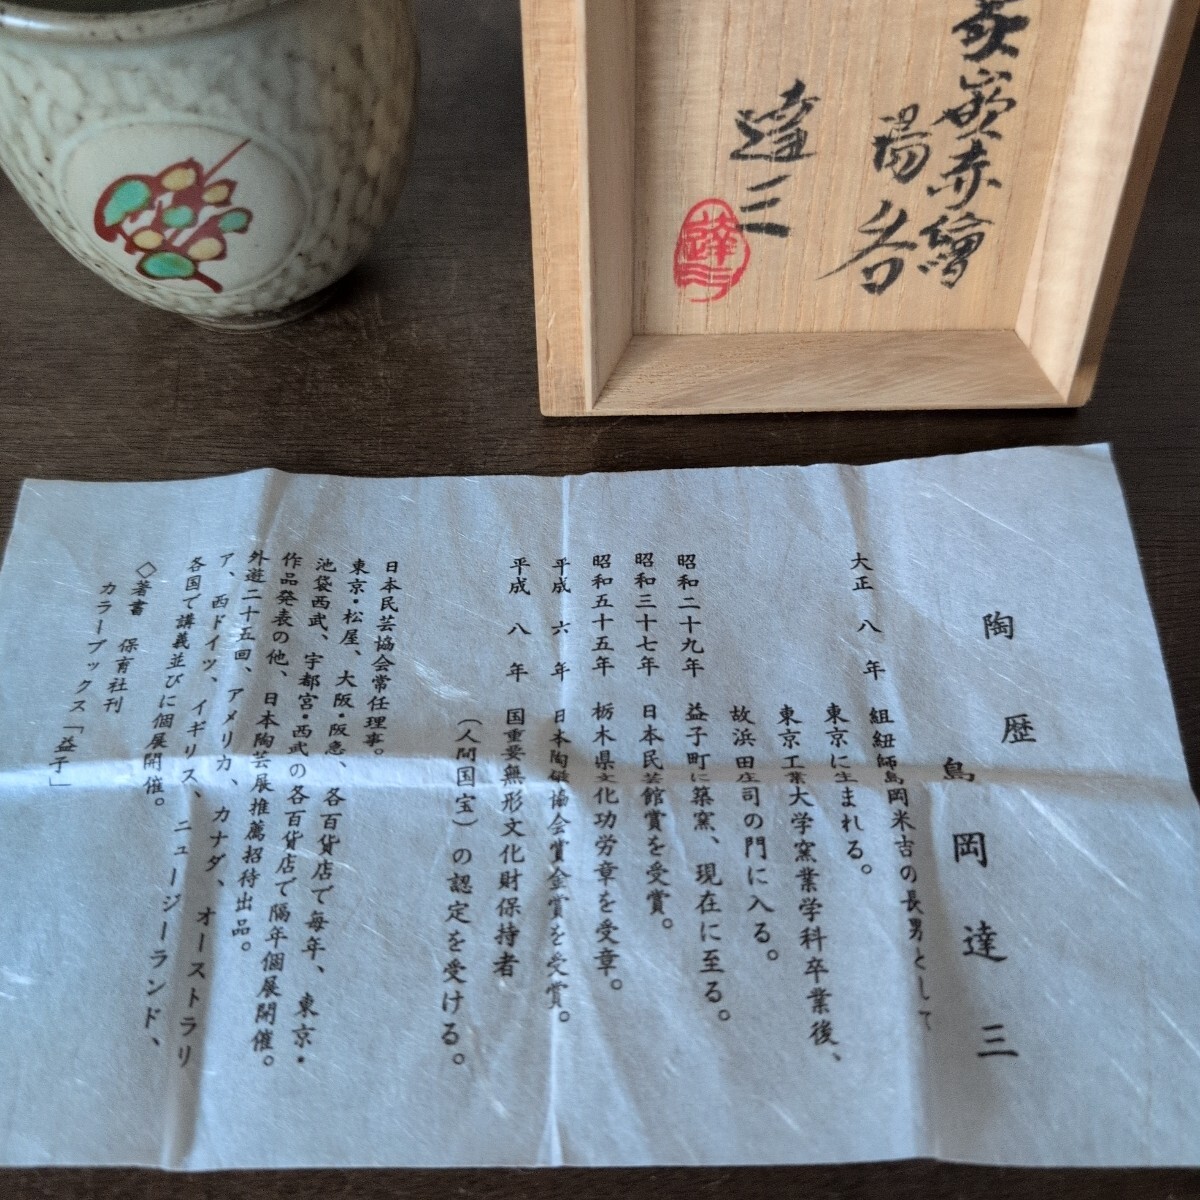 象嵌赤繪
湯呑
達三
陶歴
島岡達三
大正八年 組紐師島岡米吉の長男として
東京に生まれる。
東京工業大学窯業学科卒業後、
故浜田庄司の門に入る。
昭和二十九年 益子町に築窯、現在に至る。
昭和三十七年 日本民芸館賞を受賞。
昭和五十五年 栃木県文化功労章を受章。
平成六年 日本陶磁協会賞金賞を受賞。
平成八年 国重要無形文化財保持者
(人間国宝)の認定を受ける。
日本民芸協会常任理事。
東京・松屋、大阪・阪急、各百貨店で毎年、東京・
池袋西武、宇都宮・西武の各百貨店で隔年個展開催。
作品発表の他、日本陶芸展推薦招待出品。
外遊二十五回、アメリカ、カナダ、オーストラリ
ア、西ドイツ、イギリス、ニュージーランド、
各国で講義並びに個展開催。
◇著書 保育社刊
カラーブックス「益子」